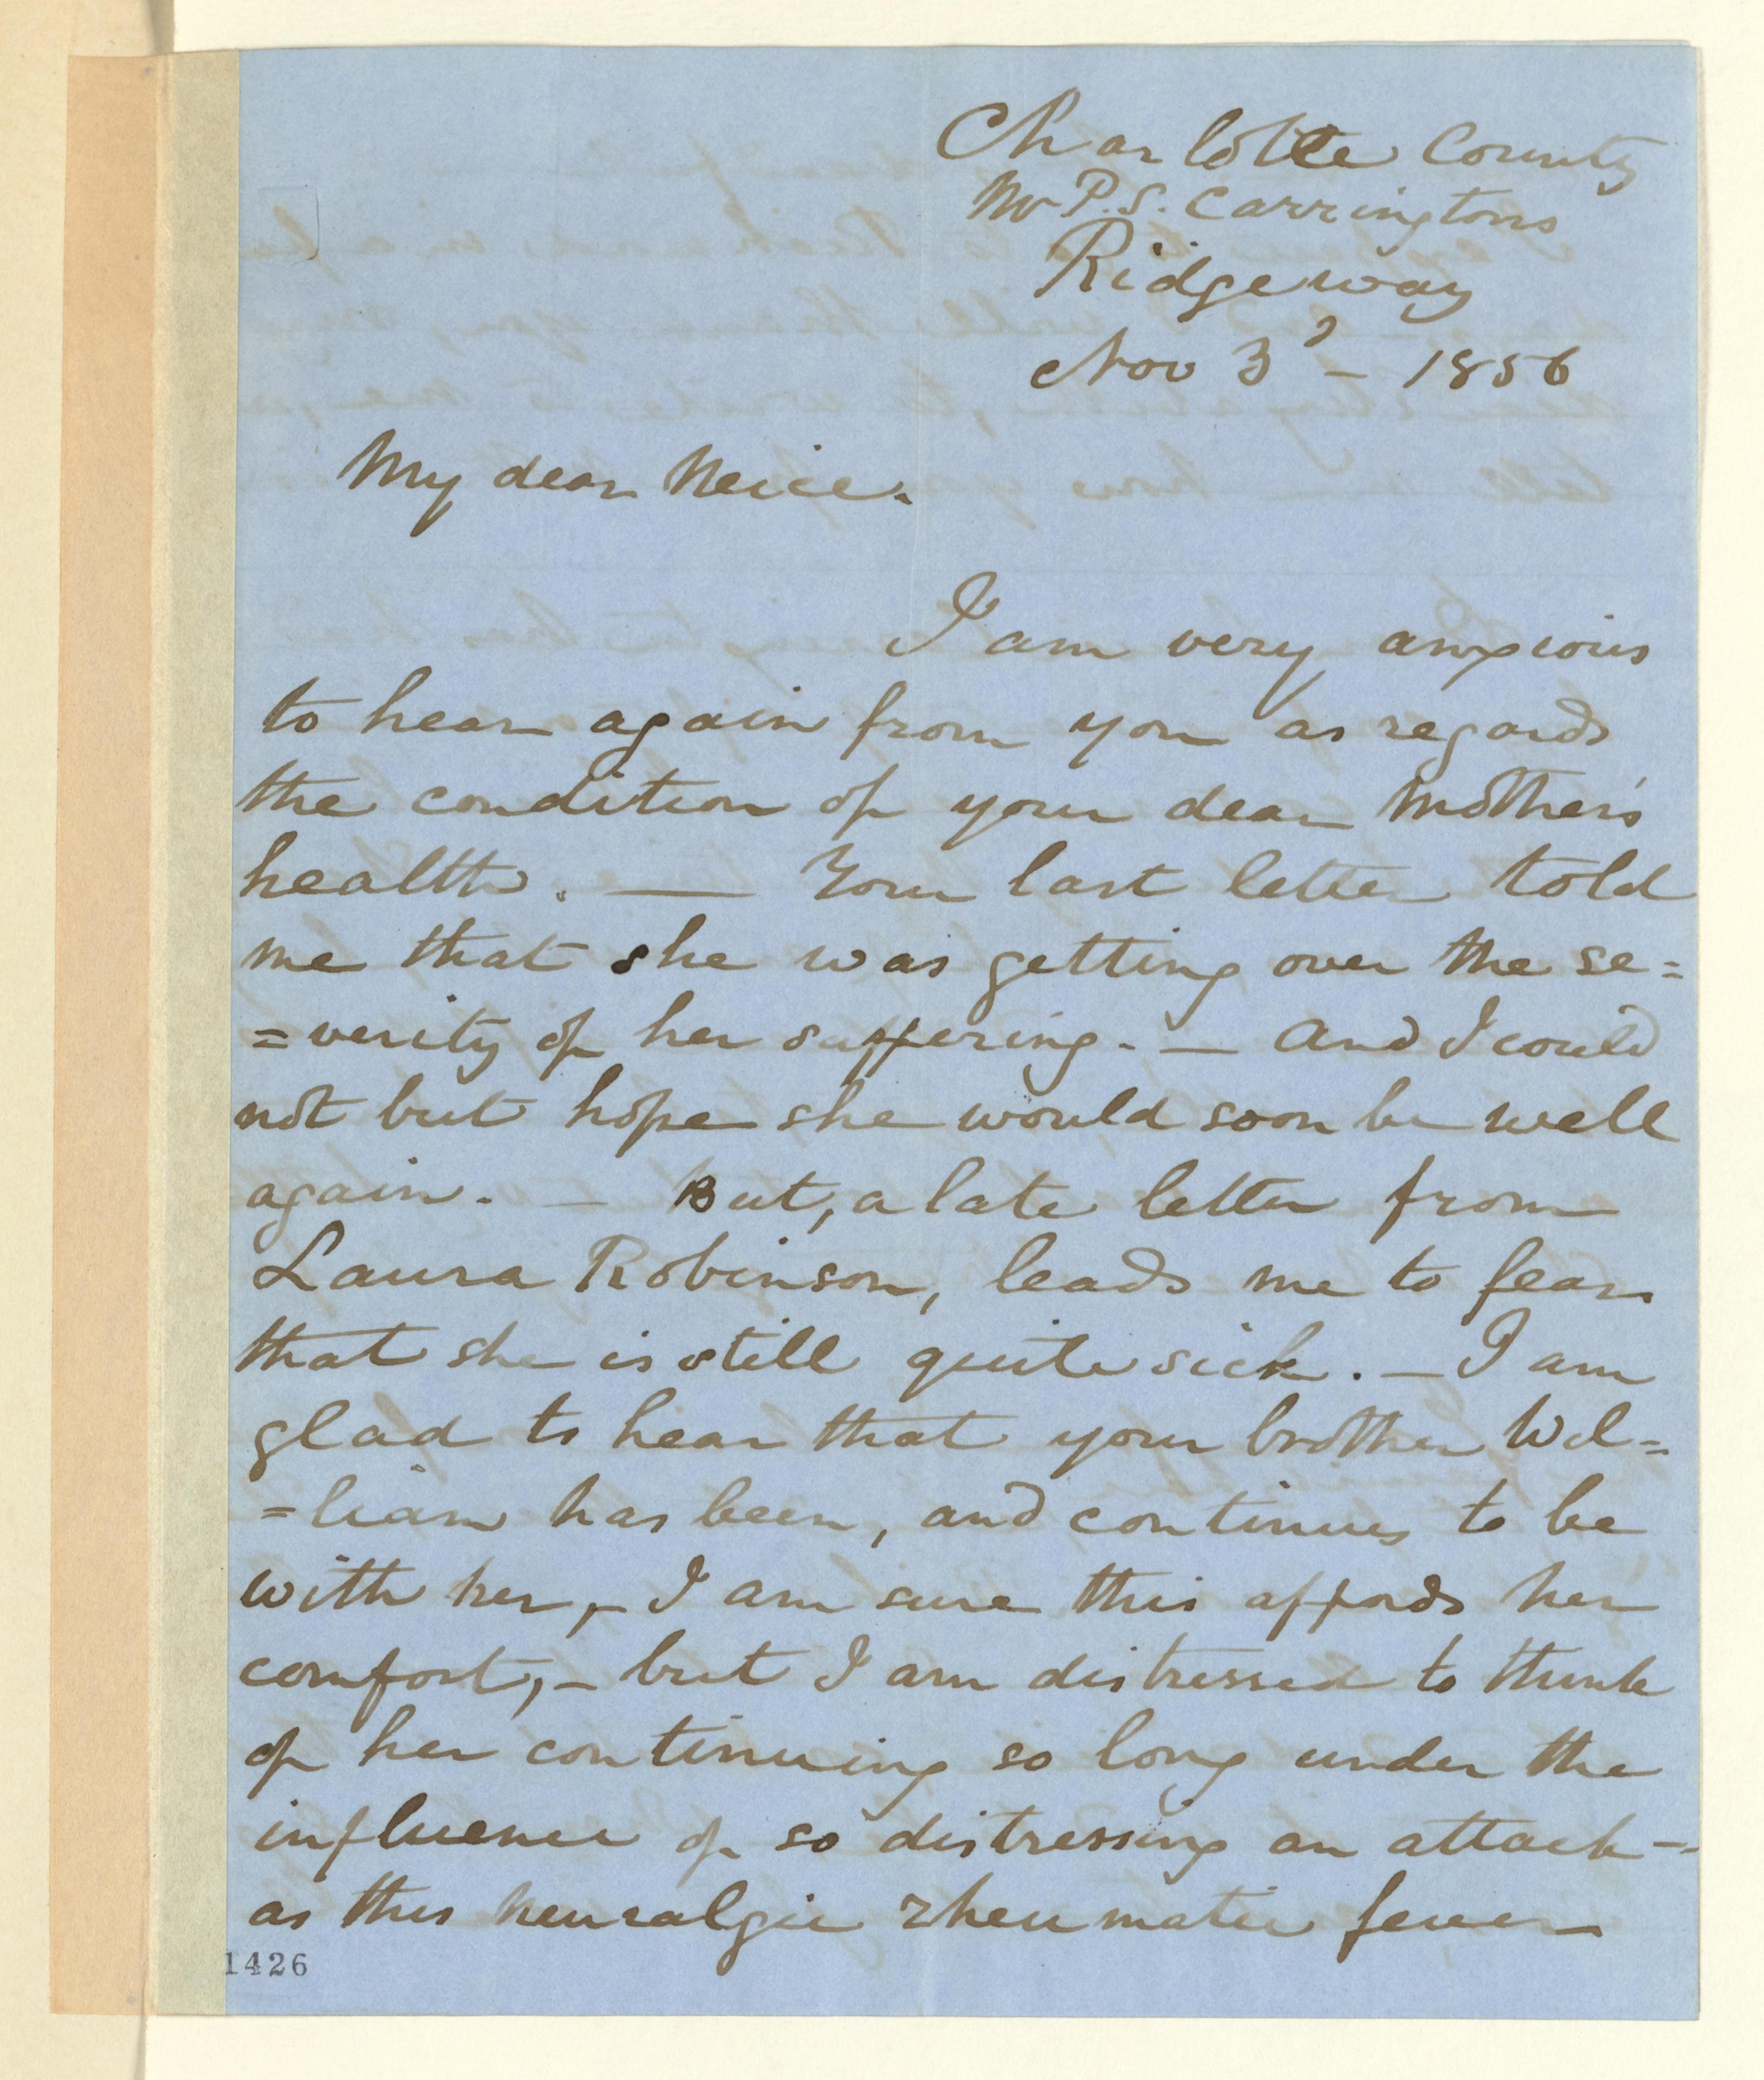 Charlotte County
Mr P.S. Carringtons
Ridgeway
Nov 3d – 1856
My dear Neice.
I am very anxious
to hear again from you as regards
the condition of your dear Mother's
health. — Your last letter told
me that she was getting over the se=
=verity of her suffering. — And I could
not but hope she would soon be well
again. — But, a late letter from
Laura Robinson, leads me to fear
that she is still quite sick. — I am
glad to hear that your brother Wil=
=liam has been, and continues to be
with her, – I am sure this affords her
comfort, – but I am distressed to think
of her continuing so long under the
influence of so distressing an attack –
as this neuralgic rheumatic fever
1426